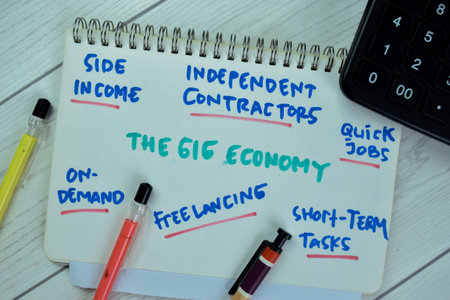 SIDE
INCOME
INDEPENDENT
CONTRACTORS
QUICK
JOBS
THE GIG ECONOMY
ON-
DEMAND
FREELANCING
SHORT-TERM
TASKS
8
5
6
2
3
0
00
.